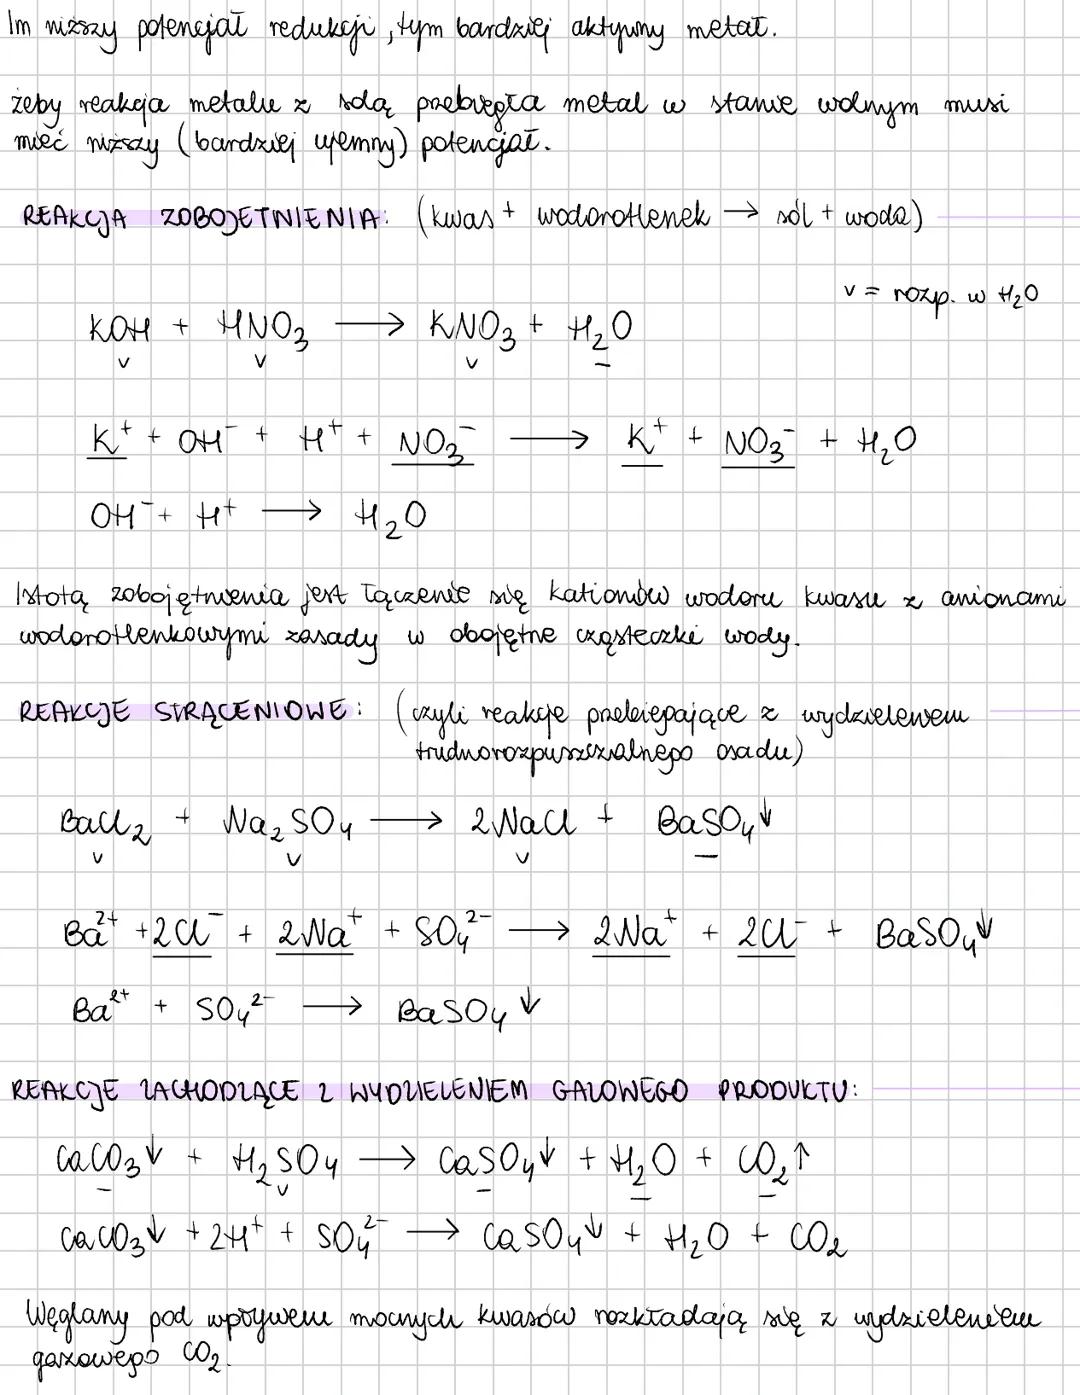 Im niższy potencjał redukcji, tym bardziej aktywny metal.
żeby reakcja metalu z solą przebiegła metal w stanie wolnym musi
mieć niższy (bardziej ujemny) potencjał.
REAKCJA ZOBOJĘTNIENIA: (kwas + wodorotlenek → sól + woda)
v = rozp. w H₂O
KOH + HNO₃ → KNO₃ + H₂O
v v v –
K⁺ + OH⁻ + H⁺ + NO₃⁻ → K⁺ + NO₃⁻ + H₂O
OH⁻ + H⁺ → H₂O
Istotą zobojętnienia jest łączenie się kationów wodoru kwasu z anionami
wodorotlenkowymi zasady w obojętne cząsteczki wody.
REAKCJE STRĄCENIOWE: (czyli reakcje przebiegające z wydzieleniem
trudnorozpuszczalnego osadu)
BaCl₂ + Na₂SO₄ → 2NaCl + BaSO₄↓
v v v –
Ba²⁺ + 2Cl⁻ + 2Na⁺ + SO₄²⁻ → 2Na⁺ + 2Cl⁻ + BaSO₄↓
Ba²⁺ + SO₄²⁻ → BaSO₄↓
REAKCJE ZACHODZĄCE Z WYDZIELENIEM GAZOWEGO PRODUKTU:
CaCO₃↓ + H₂SO₄ → CaSO₄↓ + H₂O + CO₂↑
– v – – –
CaCO₃↓ + 2H⁺ + SO₄²⁻ → CaSO₄↓ + H₂O + CO₂
Węglany pod wpływem mocnych kwasów rozkładają się z wydzieleniem
gazowego CO₂.